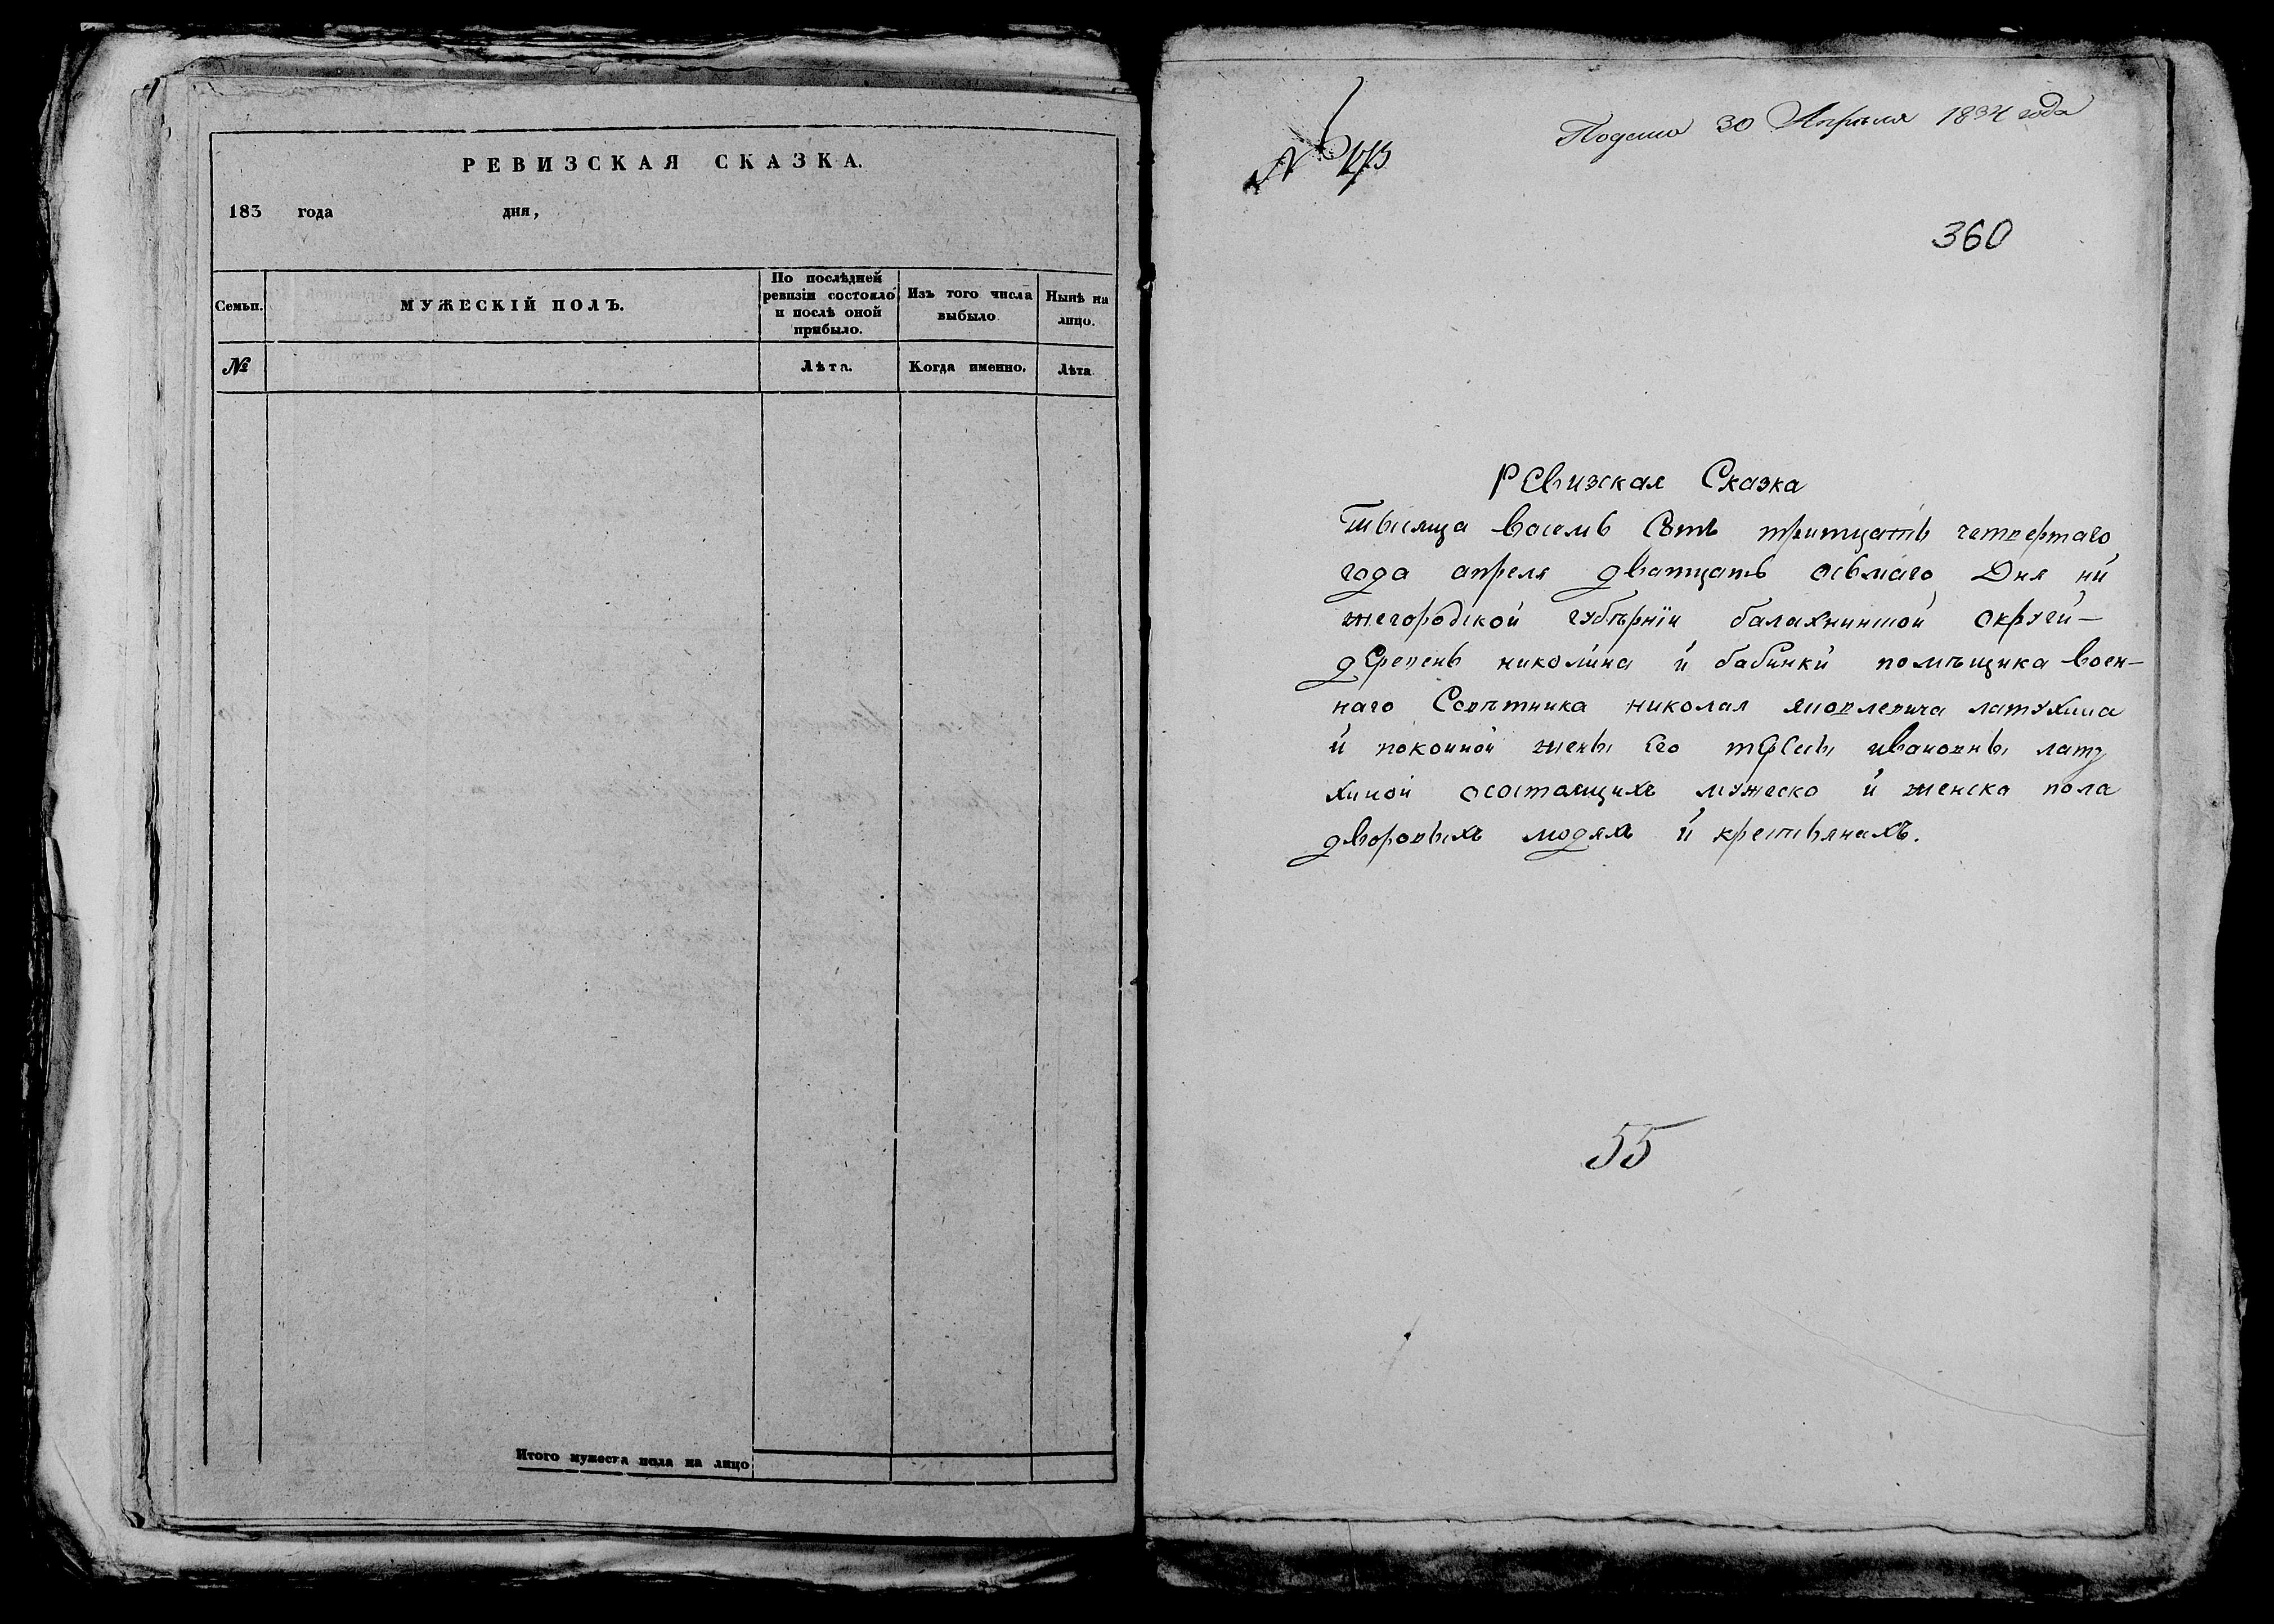 РЕВИЗСКАЯ СКАЗКА.
183 года дня,
Семьи.
МУЖЕСКІЙ ПОЛЪ.
По послѣдней
ревизіи состояло
и послѣ оной
прибыло.
Изъ того числа
выбыло
Нынѣ на
лицо.
№
Лѣта.
Когда именно.
Лѣта
Итого мужеска пола на лицо
Подана 30 Апрѣля 1834 года
№
360
Ревизская Сказка
тысяща восемь Сотъ тритцать четвертаго
года апреля дватцать осьмаго Дня ни
жегородской губѣрніи балахнинской округи-
деревень николина и бабинки помѣщика воен-
наго Совѣтника николая яковлевича латухина
и покоиной жены Его тЕсы ивановны лату
хиной осостоящихъ мужеска и женска пола
дворовыхъ людяхъ и крестьянахъ.
55